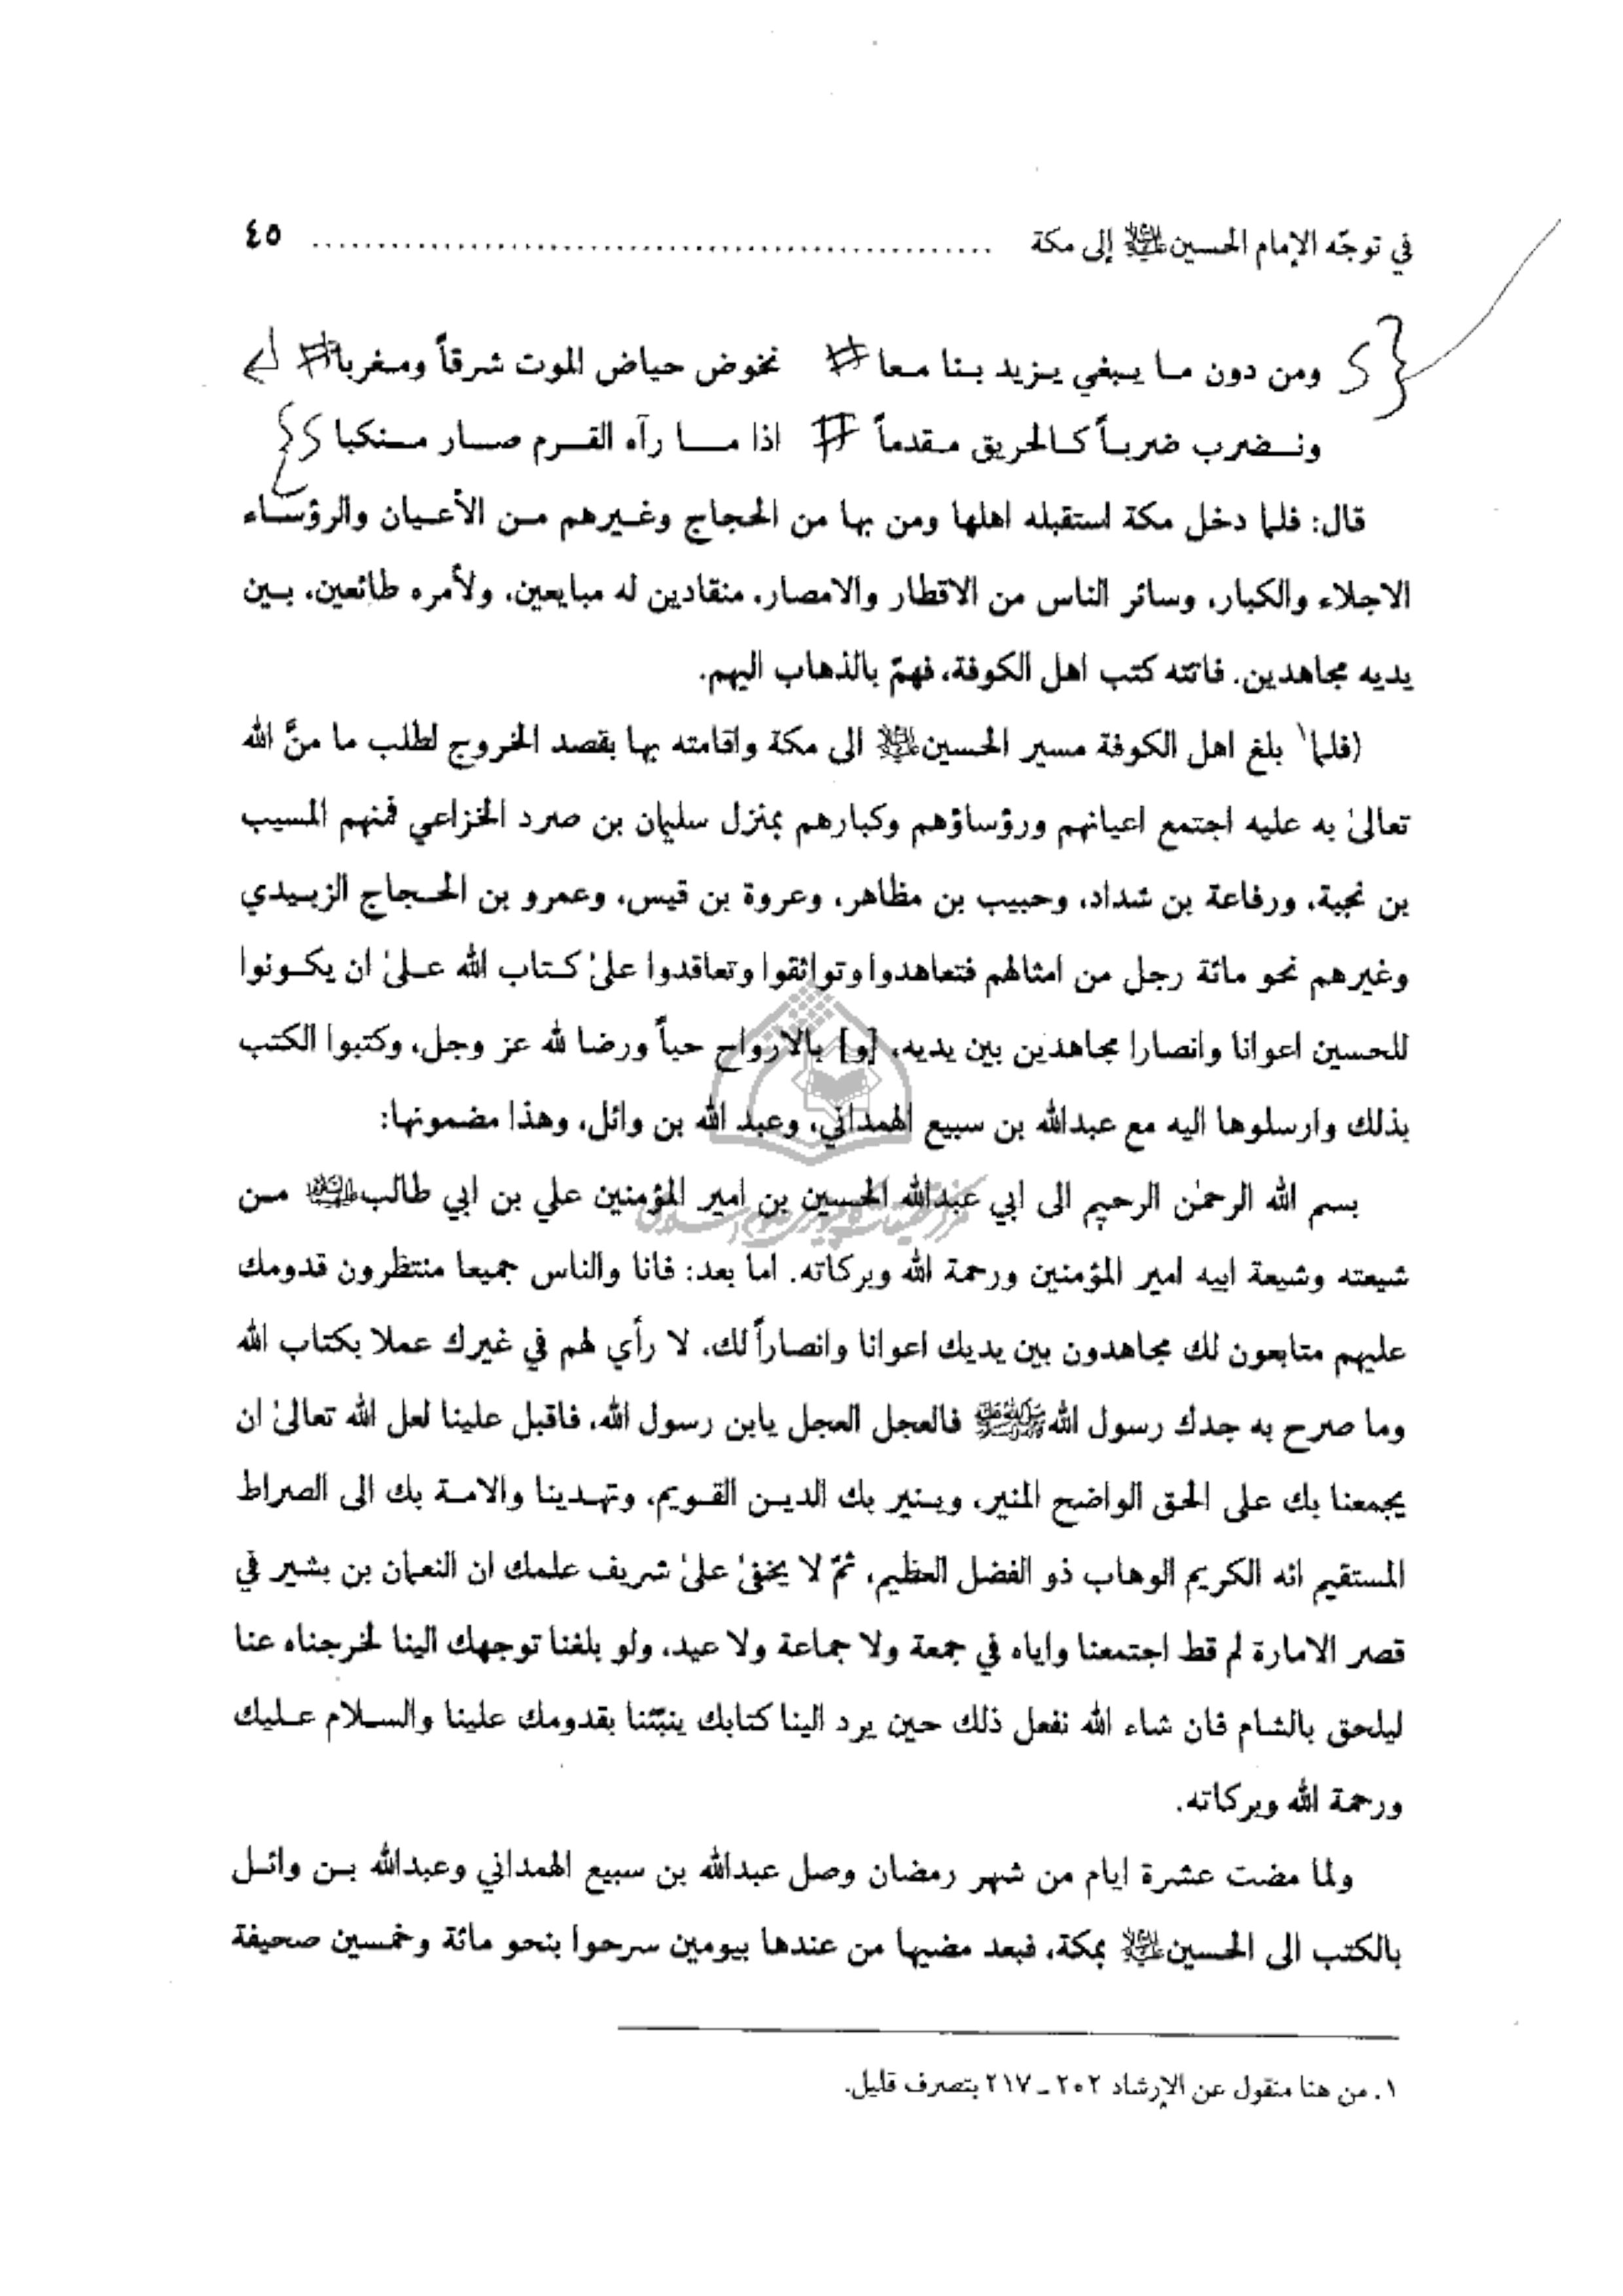 في توجّه الإمام الحسين عليه السلام إلى مكة ........ ٤٥
ومن دون ما يبغي يزيد بنا معا # نخوض حياض الموت شرقاً ومغربا #
ونضرب ضرباً كالحريق مقدماً # اذا ما رآه القرم صار منكبا
قال: فلما دخل مكة استقبله اهلها ومن بها من الحجاج وغيرهم من الأعيان والرؤساء
الاجلاء والكبار، وسائر الناس من الاقطار والامصار، منقادين له مبايعين، ولأمره طائعين، بين
يديه مجاهدين. فاتته كتب اهل الكوفة، فهمّ بالذهاب اليهم.
(فلما١ بلغ اهل الكوفة مسير الحسين عليه السلام الى مكة واقامته بها بقصد الخروج لطلب ما منَّ الله
تعالىٰ به عليه اجتمع اعيانهم ورؤساؤهم وكبارهم بمنزل سليمان بن صرد الخزاعي فمنهم المسيب
بن نجبة، ورفاعة بن شداد، وحبيب بن مظاهر، وعروة بن قيس، وعمرو بن الحجاج الزبيدي
وغيرهم نحو مائة رجل من امثالهم فتعاهدوا وتواثقوا وتعاقدوا علىٰ كتاب الله علىٰ ان يكونوا
للحسين اعوانا وانصارا مجاهدين بين يديه، [و] بالارواح حباً ورضا لله عز وجل، وكتبوا الكتب
بذلك وارسلوها اليه مع عبدالله بن سبيع الهمداني، وعبد الله بن وائل، وهذا مضمونها:
بسم الله الرحمٰن الرحيم الى ابي عبدالله الحسين بن امير المؤمنين علي بن ابي طالب عليه السلام من
شيعته وشيعة ابيه امير المؤمنين ورحمة الله وبركاته. اما بعد: فانا والناس جميعا منتظرون قدومك
عليهم متابعون لك مجاهدون بين يديك اعوانا وانصاراً لك، لا رأي لهم في غيرك عملا بكتاب الله
وما صرح به جدك رسول الله صلى الله عليه وآله فالعجل العجل يابن رسول الله، فاقبل علينا لعل الله تعالىٰ ان
يجمعنا بك على الحق الواضح المنير، وينير بك الدين القويم، وتهدينا والامة بك الى الصراط
المستقيم انه الكريم الوهاب ذو الفضل العظيم، ثمّ لا يخفىٰ علىٰ شريف علمك ان النعمان بن بشير في
قصر الامارة لم قط اجتمعنا واياه في جمعة ولا جماعة ولا عيد، ولو بلغنا توجهك الينا لخرجناه عنا
ليلحق بالشام فان شاء الله نفعل ذلك حين يرد الينا كتابك ينبّئنا بقدومك علينا والسلام عليك
ورحمة الله وبركاته.
ولما مضت عشرة ايام من شهر رمضان وصل عبدالله بن سبيع الهمداني وعبدالله بن وائل
بالكتب الى الحسين عليه السلام بمكة، فبعد مضيها من عندها بيومين سرحوا بنحو مائة وخمسين صحيفة
١. من هنا منقول عن الإرشاد ٢٠٢ ـ ٢١٧ بتصرف قليل.